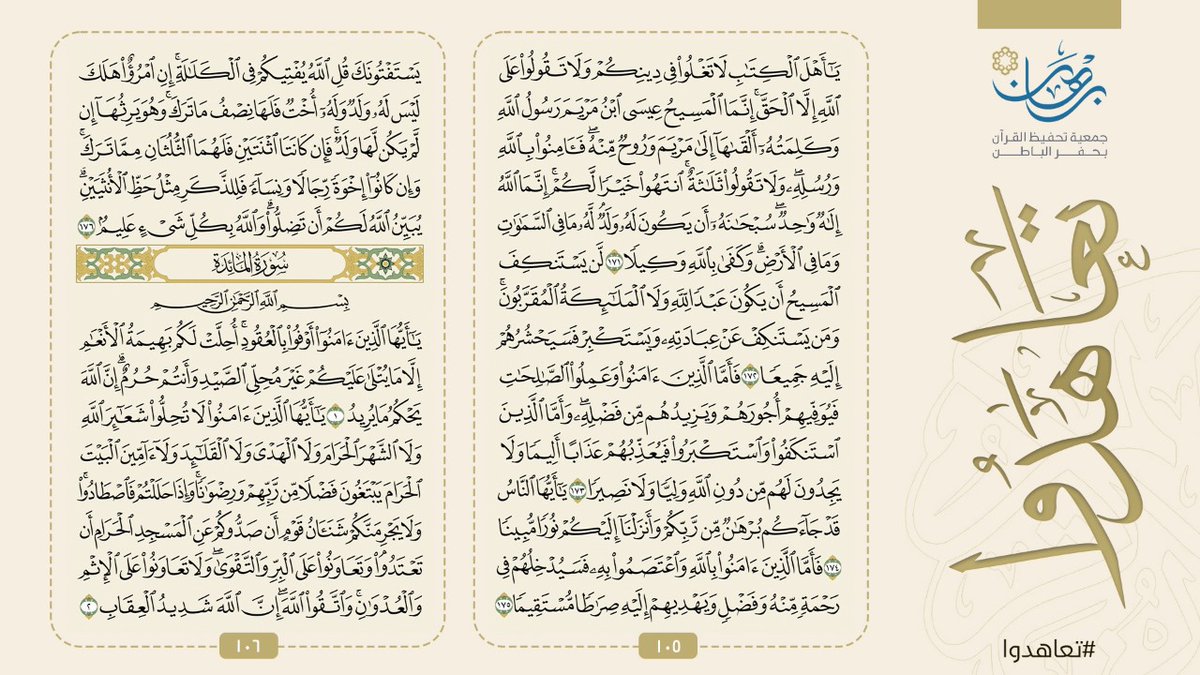 برهان
جمعية تحفيظ القرآن
بحفر الباطن
تعاهدوا
#تعاهدوا
يَٰٓأَهۡلَ ٱلۡكِتَٰبِ لَا تَغۡلُواْ فِي دِينِكُمۡ وَلَا تَقُولُواْ عَلَى
ٱللَّهِ إِلَّا ٱلۡحَقَّۚ إِنَّمَا ٱلۡمَسِيحُ عِيسَى ٱبۡنُ مَرۡيَمَ رَسُولُ ٱللَّهِ
وَكَلِمَتُهُۥٓ أَلۡقَىٰهَآ إِلَىٰ مَرۡيَمَ وَرُوحٞ مِّنۡهُۖ فَـَٔامِنُواْ بِٱللَّهِ
وَرُسُلِهِۦۖ وَلَا تَقُولُواْ ثَلَٰثَةٌۚ ٱنتَهُواْ خَيۡرٗا لَّكُمۡۚ إِنَّمَا ٱللَّهُ
إِلَٰهٞ وَٰحِدٞۖ سُبۡحَٰنَهُۥٓ أَن يَكُونَ لَهُۥ وَلَدٞۘ لَّهُۥ مَا فِي ٱلسَّمَٰوَٰتِ
وَمَا فِي ٱلۡأَرۡضِۗ وَكَفَىٰ بِٱللَّهِ وَكِيلٗا ١٧١ لَّن يَسۡتَنكِفَ
ٱلۡمَسِيحُ أَن يَكُونَ عَبۡدٗا لِّلَّهِ وَلَا ٱلۡمَلَٰٓئِكَةُ ٱلۡمُقَرَّبُونَۚ
وَمَن يَسۡتَنكِفۡ عَنۡ عِبَادَتِهِۦ وَيَسۡتَكۡبِرۡ فَسَيَحۡشُرُهُمۡ
إِلَيۡهِ جَمِيعٗا ١٧٢ فَأَمَّا ٱلَّذِينَ ءَامَنُواْ وَعَمِلُواْ ٱلصَّٰلِحَٰتِ
فَيُوَفِّيهِمۡ أُجُورَهُمۡ وَيَزِيدُهُم مِّن فَضۡلِهِۦۖ وَأَمَّا ٱلَّذِينَ
ٱسۡتَنكَفُواْ وَٱسۡتَكۡبَرُواْ فَيُعَذِّبُهُمۡ عَذَابًا أَلِيمٗا وَلَا
يَجِدُونَ لَهُم مِّن دُونِ ٱللَّهِ وَلِيّٗا وَلَا نَصِيرٗا ١٧٣ يَٰٓأَيُّهَا ٱلنَّاسُ
قَدۡ جَآءَكُم بُرۡهَٰنٞ مِّن رَّبِّكُمۡ وَأَنزَلۡنَآ إِلَيۡكُمۡ نُورٗا مُّبِينٗا
١٧٤ فَأَمَّا ٱلَّذِينَ ءَامَنُواْ بِٱللَّهِ وَٱعۡتَصَمُواْ بِهِۦ فَسَيُدۡخِلُهُمۡ فِي
رَحۡمَةٖ مِّنۡهُ وَفَضۡلٖ وَيَهۡدِيهِمۡ إِلَيۡهِ صِرَٰطٗا مُّسۡتَقِيمٗا ١٧٥
١٠٥
يَسۡتَفۡتُونَكَ قُلِ ٱللَّهُ يُفۡتِيكُمۡ فِي ٱلۡكَلَٰلَةِۚ إِنِ ٱمۡرُؤٌاْ هَلَكَ
لَيۡسَ لَهُۥ وَلَدٞ وَلَهُۥٓ أُخۡتٞ فَلَهَا نِصۡفُ مَا تَرَكَۚ وَهُوَ يَرِثُهَآ إِن
لَّمۡ يَكُن لَّهَا وَلَدٞۚ فَإِن كَانَتَا ٱثۡنَتَيۡنِ فَلَهُمَا ٱلثُّلُثَانِ مِمَّا تَرَكَۚ
وَإِن كَانُوٓاْ إِخۡوَةٗ رِّجَالٗا وَنِسَآءٗ فَلِلذَّكَرِ مِثۡلُ حَظِّ ٱلۡأُنثَيَيۡنِۗ
يُبَيِّنُ ٱللَّهُ لَكُمۡ أَن تَضِلُّواْۗ وَٱللَّهُ بِكُلِّ شَيۡءٍ عَلِيمُۢ ١٧٦
سُورَةُ المَائِدَةِ
بِسۡمِ ٱللَّهِ ٱلرَّحۡمَٰنِ ٱلرَّحِيمِ
يَٰٓأَيُّهَا ٱلَّذِينَ ءَامَنُوٓاْ أَوۡفُواْ بِٱلۡعُقُودِۚ أُحِلَّتۡ لَكُم بَهِيمَةُ ٱلۡأَنۡعَٰمِ
إِلَّا مَا يُتۡلَىٰ عَلَيۡكُمۡ غَيۡرَ مُحِلِّي ٱلصَّيۡدِ وَأَنتُمۡ حُرُمٌۗ إِنَّ ٱللَّهَ
يَحۡكُمُ مَا يُرِيدُ ١ يَٰٓأَيُّهَا ٱلَّذِينَ ءَامَنُواْ لَا تُحِلُّواْ شَعَٰٓئِرَ ٱللَّهِ
وَلَا ٱلشَّهۡرَ ٱلۡحَرَامَ وَلَا ٱلۡهَدۡيَ وَلَا ٱلۡقَلَٰٓئِدَ وَلَآ ءَآمِّينَ ٱلۡبَيۡتَ
ٱلۡحَرَامَ يَبۡتَغُونَ فَضۡلٗا مِّن رَّبِّهِمۡ وَرِضۡوَٰنٗاۚ وَإِذَا حَلَلۡتُمۡ فَٱصۡطَادُواْۚ
وَلَا يَجۡرِمَنَّكُمۡ شَنَـَٔانُ قَوۡمٍ أَن صَدُّوكُمۡ عَنِ ٱلۡمَسۡجِدِ ٱلۡحَرَامِ أَن
تَعۡتَدُواْۘ وَتَعَاوَنُواْ عَلَى ٱلۡبِرِّ وَٱلتَّقۡوَىٰۖ وَلَا تَعَاوَنُواْ عَلَى ٱلۡإِثۡمِ
وَٱلۡعُدۡوَٰنِۚ وَٱتَّقُواْ ٱللَّهَۖ إِنَّ ٱللَّهَ شَدِيدُ ٱلۡعِقَابِ ٢
١٠٦